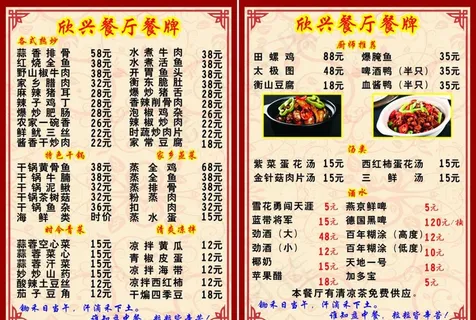 欣兴餐厅餐牌
各式热炒
蒜香排骨 58元
红烧全鱼 38元
野山椒牛肉 38元
家乡腊肉 32元
麻辣猪耳 28元
辣子鸡丁 28元
爆炒肥肠 28元
农家一碗香 26元
鲜鱿三丝 22元
酱香干炒肉 22元
水煮牛肉 38元
水煮活鱼 38元
开胃鱼头 38元
衡东脆肚 38元
爆炒猪舌 28元
香辣削骨肉 28元
泡椒鸡杂 26元
辣椒炒肉 22元
时蔬炒肉片 22元
家常豆腐 18元
特色干锅
干锅黄骨鱼 48元
干锅牛腩 38元
干锅泥鳅 32元
干锅茶树菇 32元
干锅鱼杂 32元
海鲜类 时价
家乡蒸菜
蒸全鸡 68元
蒸全鱼 38元
蒸排骨 38元
粉蒸肉 32元
扣肉 32元
蒸水蛋 15元
时令青菜
蒜蓉空心菜 15元
蒜蓉菜心 15元
蒜蓉汗菜 15元
妙炒山药 15元
酸辣土豆丝 12元
茄子豆角 12元
清爽凉拌
凉拌黄瓜 12元
青椒皮蛋 12元
凉拌海带 12元
凉拌西红柿 12元
干煸四季豆 18元
锄禾日当午，汗滴禾下土。
谁知盘中餐，粒粒皆辛苦！
欣兴餐厅餐牌
厨师推荐
田螺鸡 88元
太极图 48元
衡山豆腐 18元
爆腌鱼 35元
啤酒鸭（半只） 35元
血酱鸭（半只） 35元
汤类
紫菜蛋花汤 15元
金针菇肉片汤 15元
西红柿蛋花汤 15元
三鲜汤 15元
酒水
雪花勇闯天涯 5元
蓝带将军 15元
劲酒（大） 48元
劲酒（小） 12元
椰奶 15元
苹果醋 18元
燕京鲜啤 5元
德国黑啤 120元/抽
百年糊涂（高度） 12元
百年糊涂（低度） 10元
天地一号 18元
加多宝 5元
本餐厅有清凉茶免费供应。
锄禾日当午，汗滴禾下土。
谁知盘中餐，粒粒皆辛苦！